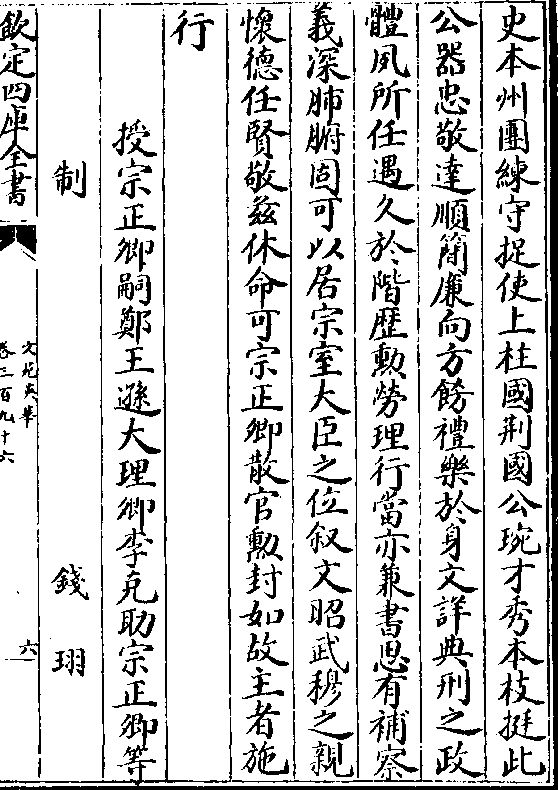 史本州團練守捉使上柱國荆國公琬才秀本枝挺此
公器忠敬達順簡廉向方飭禮樂於身文詳典刑之政
體夙所任遇久於階歷勲勞理行當亦兼書思有補察
義深肺腑固可以居宗室大臣之位叙文昭武穆之親
懷德任賢敬兹休命可宗正卿散官勲封如故主者施
行
授宗正卿嗣鄭王遜大理卿李克助宗正卿等
制 錢珝
欽定四庫全書
文苑英華
卷三百九十六
六